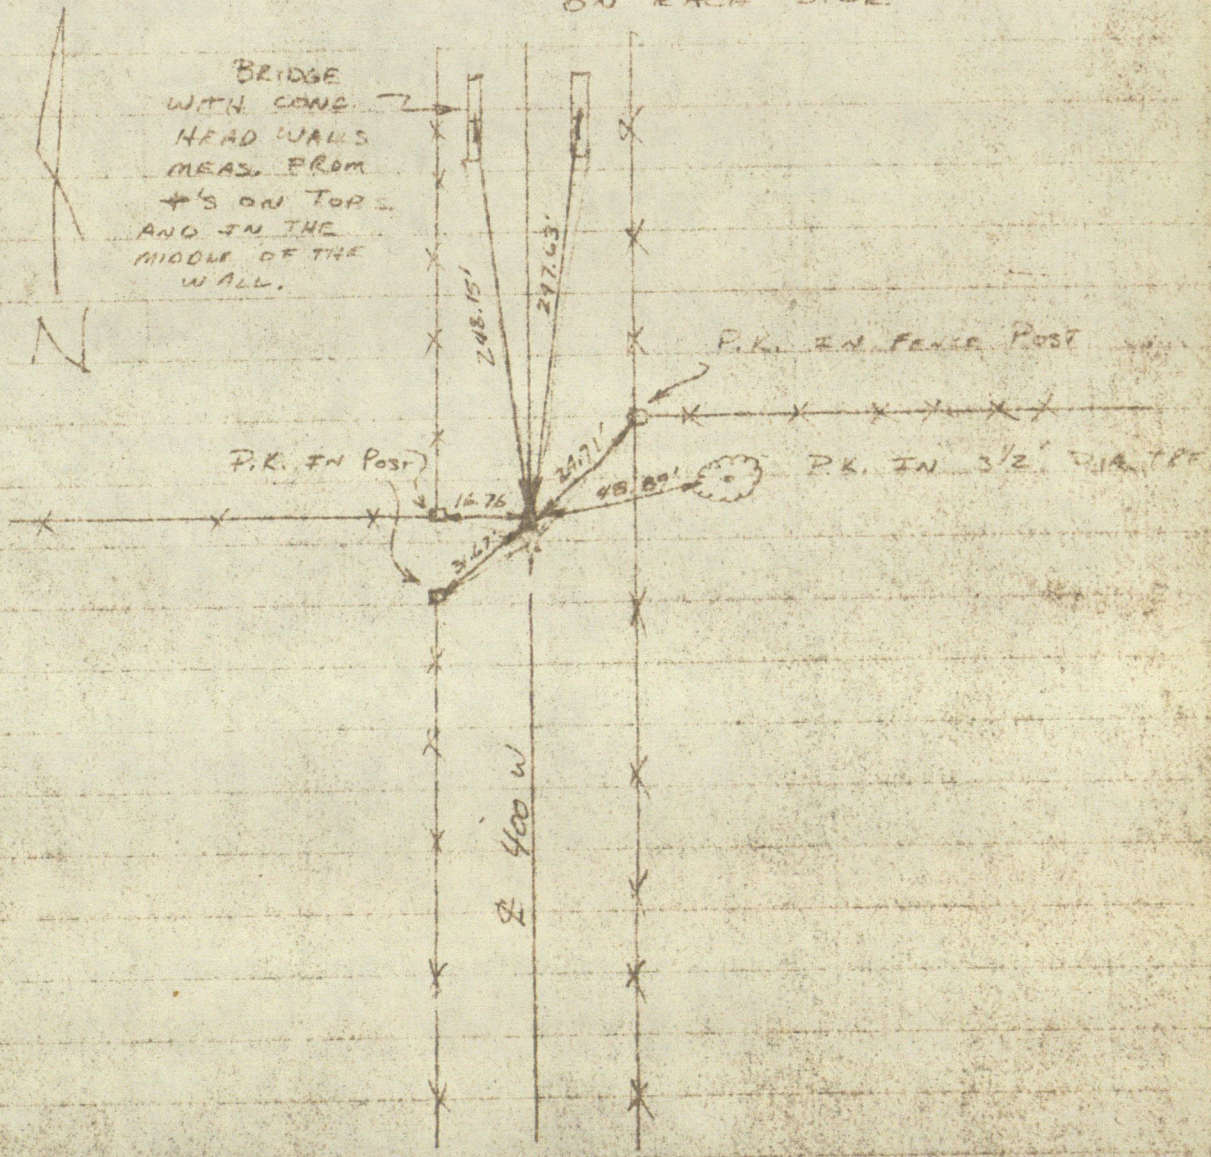 ON EACH SIDE
BRIDGE
WITH CONC.
HEAD WALLS
MEAS. FROM
+'S ON TOPS
AND IN THE
MIDDLE OF THE
WALL.
N
248.15'
247.63'
P.K. IN FENCE POST
P.K. IN POST
16.76
29.71'
48.89'
P.K. IN 3 1/2' DIA. TREE
℄ 400 W